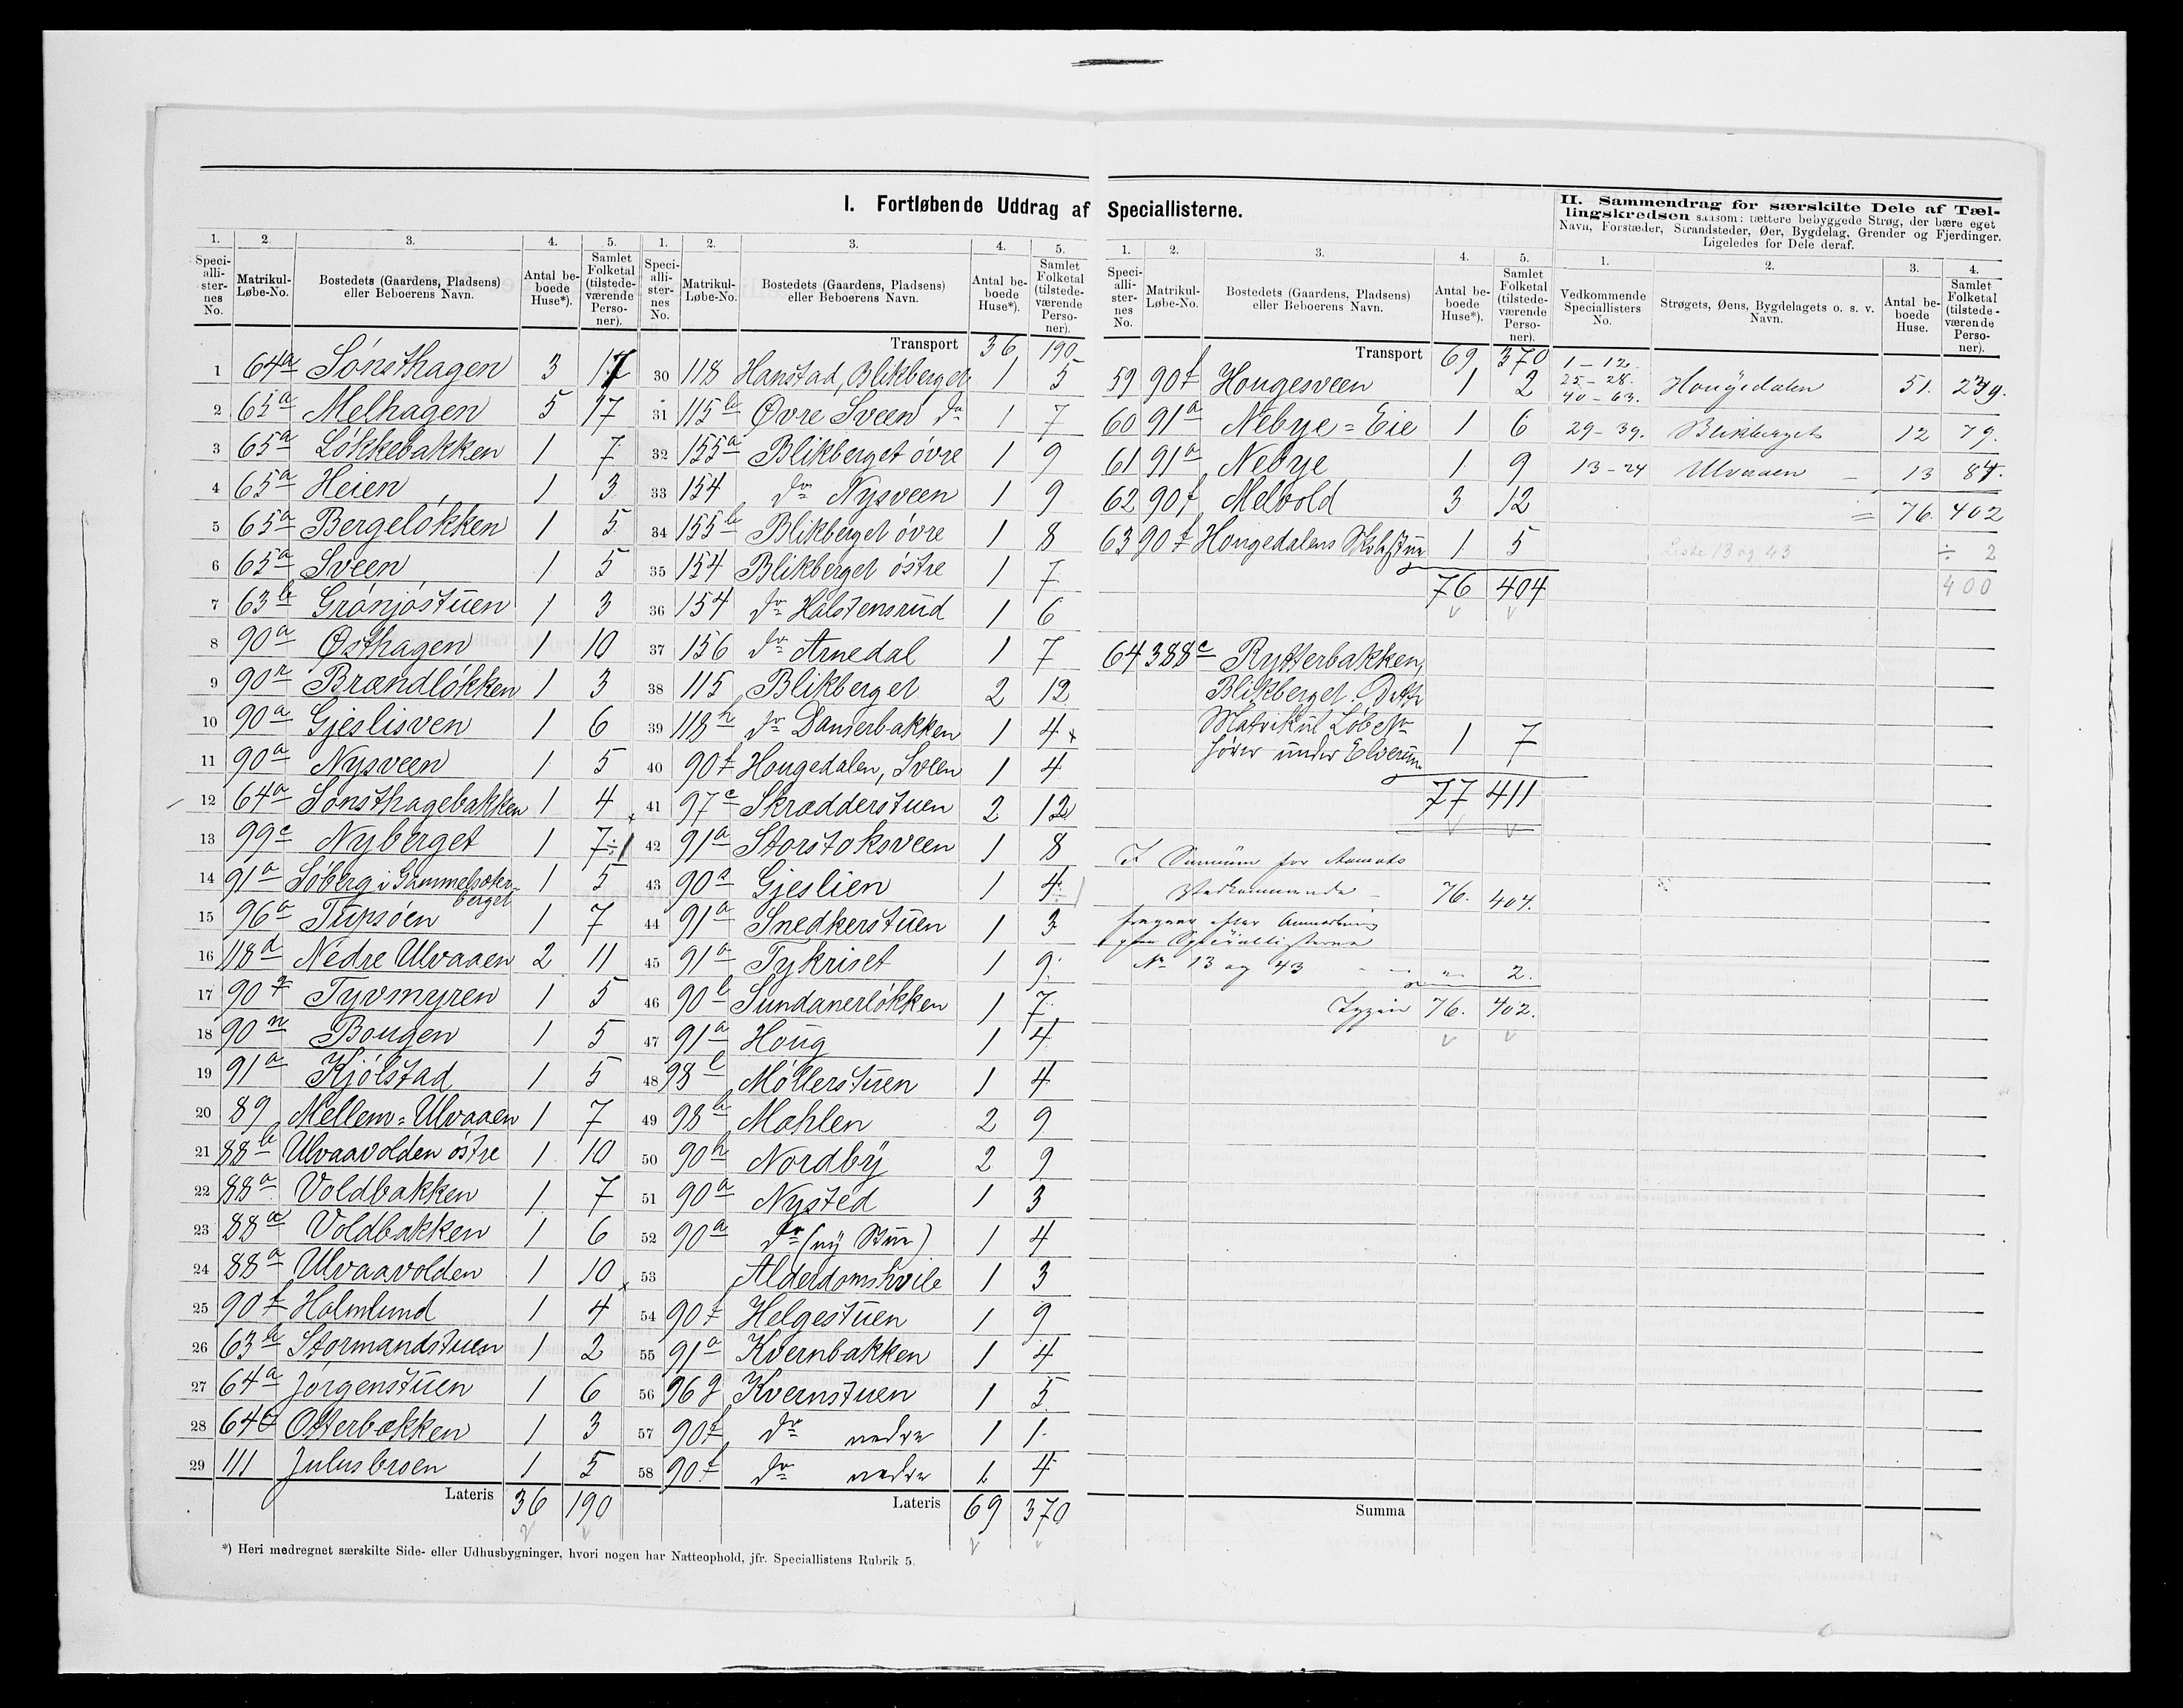 I. Fortløbende Uddrag af Speciallisterne.
1. 2. 3. 4. 5.
Speci-alli-ster-nes No. Matrikul-Løbe-No. Bostedets (Gaardens, Pladsens) eller Beboerens Navn. Antal be-boede Huse*). Samlet Folketal (tilstede-værende Perso-ner).
1 64a Sønsthagen 3 17
2 65a Melhagen 5 17
3 65a Løkkebakken 1 7
4 65a Heien 1 3
5 65a Bergeløkken 1 5
6 65a Sveen 1 5
7 63b Grønjøstuen 1 3
8 90a Østhagen 1 10
9 90r Brændløkken 1 3
10 90a Gjeslisven 1 6
11 90a Nysveen 1 5
12 64a Sønsthagebakken 1 4
13 99c Nyberget 1 7÷1
14 91a Søberg i Gammelsæter-berget 1 5
15 96a Tupsøen 1 7
16 118d Nedre Ulvaaen 2 11
17 90q Tyvmyren 1 5
18 90n Bougen 1 5
19 91a Kjølstad 1 5
20 89 Mellem=Ulvaaen 1 7
21 88b Ulvaavolden østre 1 10
22 88a Voldbakken 1 7
23 88a Voldbakken 1 6
24 88a Ulvaavolden 1 10
25 90f Holmlund 1 4
26 63b Stormandstuen 1 2
27 64a Jørgenstuen 1 6
28 64a Otterbækken 1 3
29 111 Julusbroen 1 5
Lateris 36 190
*) Heri medregnet særskilte Side- eller Udhusbygninger, hvori nogen har Natteophold, jfr. Speciallistens Rubrik 5.
1. 2. 3. 4. 5.
Speci-alli-ster-nes No. Matrikul-Løbe-No. Bostedets (Gaardens, Pladsens) eller Beboerens Navn. Antal be-boede Huse*). Samlet Folketal (tilstede-værende Perso-ner).
Transport 36 190
30 118 Hanstad, Blikberget 1 5
31 115b Øvre Sveen do 1 7
32 155a Blikberget øvre 1 9
33 154 do Nysveen 1 9
34 155b Blikberget øvre 1 8
35 154 Blikberget østre 1 7
36 154 do Halstensrud 1 6
37 156 do Arnedal 1 7
38 115 Blikberget 2 12
39 118h do Danserbakken 1 4
40 90f Hougedalen, Sveen 1 4
41 97c Skrædderstuen 2 12
42 91a Storstoksveen 1 8
43 90a Gjeslien 1 4
44 91a Snedkerstuen 1 3
45 91a Tykriset 1 9
46 90b Sundanerløkken 1 7
47 91a Houg 1 4
48 98b Møllerstuen 1 4
49 98b Mohlen 2 9
50 90h Nordby 2 9
51 90a Nysted 1 3
52 90a do (ny Stue) 1 4
53 Alderdomshvile 1 3
54 90f Helgestuen 1 9
55 91a Kvernbakken 1 4
56 96g Kvernstuen 1 5
57 90f do nedre 1 1
58 90f do nedre 1 4
Lateris 69 370
1. 2. 3. 4. 5.
Speci-alli-ster-nes No. Matrikul-Løbe-No. Bostedets (Gaardens, Pladsens) eller Beboerens Navn. Antal be-boede Huse*). Samlet Folketal (tilstede-værende Perso-ner).
Transport 69 370
59 90f Hougesveen 1 2
60 91a Nebye=Eie 1 6
61 91a Nebye 1 9
62 90f Melvold 3 12
63 90f Hougedalens Skolestue 1 5
76 404
64 388c Rytterbakken,
Blikberget. Dette
Matrikul Løbe No
hører under Elverum 1 7
77 411
Summa for Aamots
Vedkommende 76. 404.
fragaar efter Anmærkning
paa Speciallisterne
No 13 og 43 " 2.
Igjen 76. 402.
Summa
II. Sammendrag for særskilte Dele af Tæl-
lingskredsen saasom: tættere bebyggede Strøg, der bære eget
Navn, Forstæder, Strandsteder, Øer, Bygdelag, Grender og Fjerdinger.
Ligeledes for Dele deraf.
1. 2. 3. 4.
Vedkommende Speciallisters No. Strøgets, Øens, Bygdelagets o. s. v. Navn. Antal be-boede Huse. Samlet Folketal (tilstede-værende Perso-ner).
1–12.
25–28.
40–63. Hougedalen 51. 239.
29–39. Blikberget 12 79.
13–24 Ulvaaen 13 84.
= 76. 402
Liste 13 og 43 ÷ 2
400